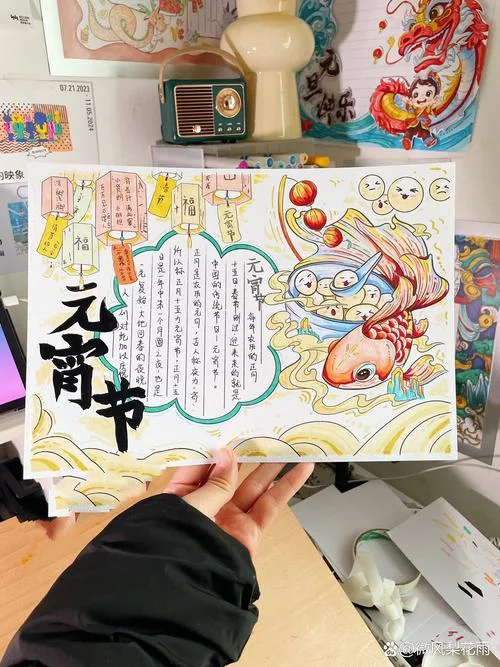 07.21.2023
- 11.05.2024
的映象
元旦快乐
福
福
元宵节
元宵节
元宵节
每年农历的正月
十五日春节刚过迎来的就是
中国的传统节日—元宵节。
正月是农历的元月，古人称夜为"宵"
所以称正月十五为元宵节。正月十五
日是一年中第一个月圆之夜，也是
一元复始大地回春的夜晚
人们对此加以庆祝
微风梨花雨